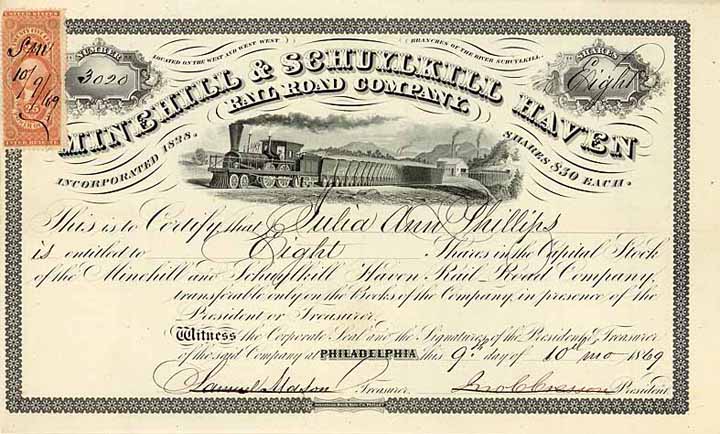 NUMBER
3020
LOCATED ON THE WEST AND WEST WEST
BRANCHES OF THE RIVER SCHUYLKILL.
SHARES
Eight
10/9/69
25
MINEHILL & SCHUYLKILL HAVEN
RAIL ROAD COMPANY.
INCORPORATED 1828.
SHARES $50 EACH.
This is to Certify that Julia Ann Phillips
is entitled to Eight Shares in the Capital Stock
of the Minehill and Schuylkill Haven Rail-Road Company,
transferable only on the Books of the Company, in presence of the
President or Treasurer.
Witness the Corporate Seal and the Signatures of the President & Treasurer
of the said Company at PHILADELPHIA this 9th day of 10th mo 1869
Samuel Mason Treasurer. Jno C Cresson President.